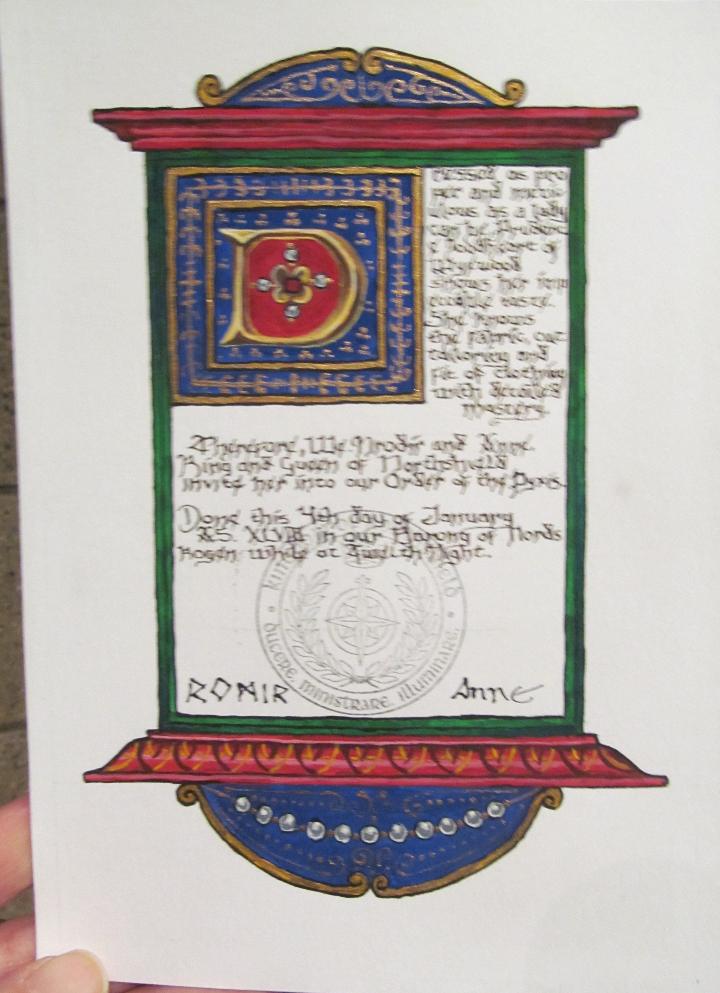 D
ressed as pro
per and metic
ulous as a lady
can be, Prudence
show's her imp
eccable taste.
She knows
the fabric, cut
tailoring and
fit of clothing
with detailed
mastery.
Therefore, We Hrodir and Anne
King and Queen of Northshield
invite her into our Order of the Pyxis.
Done this 4th day of January
A.S. XLVIII in our Barony of Nords
kogen while at Twelfth Night.
DUCERE, MINISTRARE, ILLUMINARE,
Anne